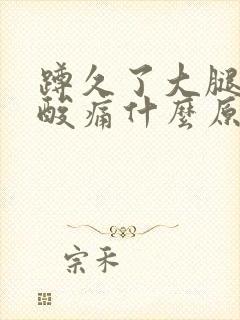 蹲久了大腿
酸痛什麼原
宗禾